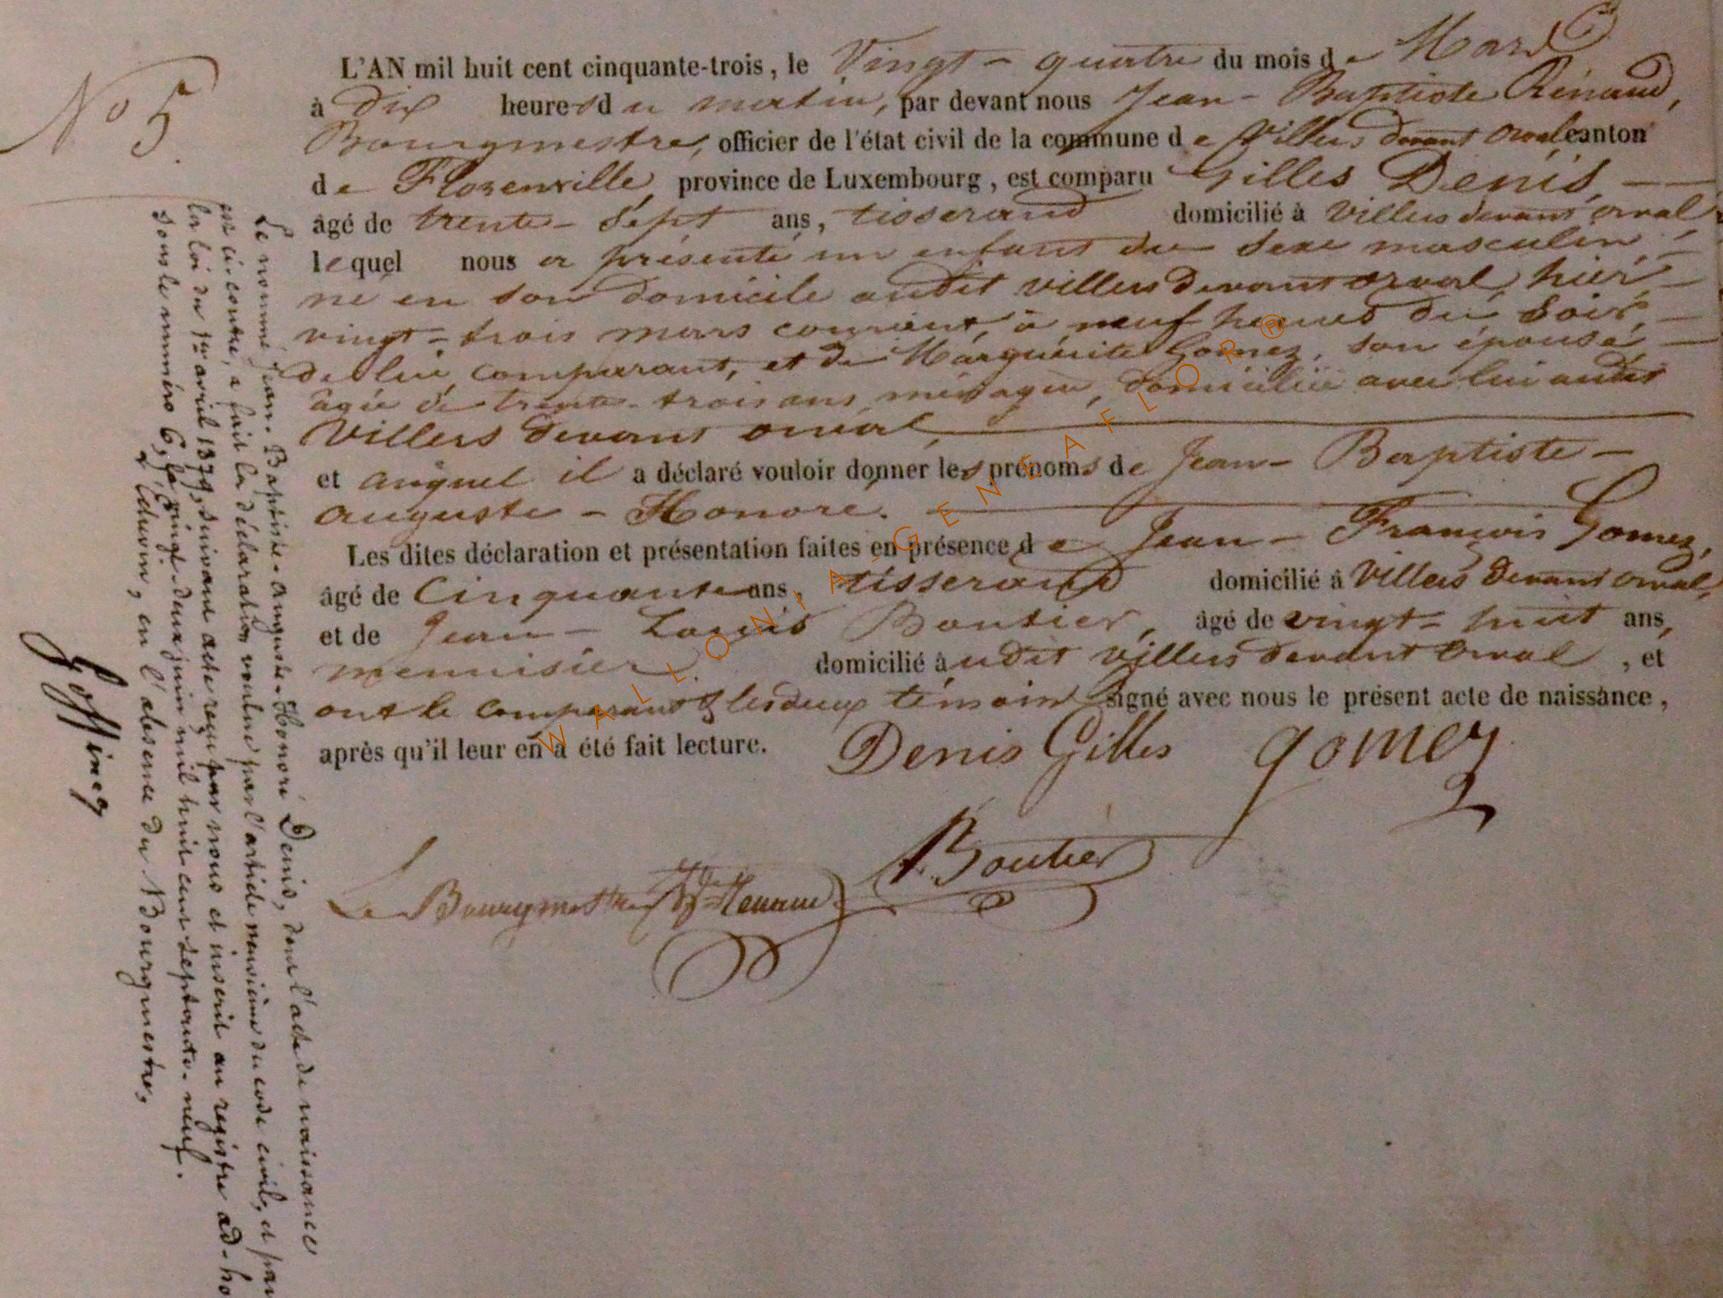 No 5.
L'AN mil huit cent cinquante-trois, le Vingt-quatre du mois de Mars
à dix heures du matin, par devant nous Jean-Baptiste Rénaud,
Bourgmestre, officier de l'état civil de la commune de Villers devant orval canton
de Florenville, province de Luxembourg, est comparu Gilles Denis,
âgé de trente-Sept ans, tisserand domicilié à Villers devant orval,
lequel nous a présenté un enfant du sexe masculin,
né en son domicile audit villers devant orval, hier
vingt-trois mars courant, à neuf heures du soir,
de lui comparant, et de Marguérite Gomez, son épouse,
âgée de trente-trois ans, ménagère, domiciliée avec lui audit
Villers devant orval,
et auquel il a déclaré vouloir donner les prénoms de Jean-Baptiste-
Auguste-Honoré.
Les dites déclaration et présentation faites en présence de Jean-François Gomez,
âgé de Cinquante ans, tisserand domicilié à Villers devant orval,
et de Jean-Louis Boutier, âgé de vingt-huit ans,
menuisier domicilié audit villers devant Orval, et
ont le comparant & les deux témoins signé avec nous le présent acte de naissance,
après qu'il leur en a été fait lecture. Denis Gilles gomez
Boutier
Le Bourgmestre
Le nommé Jean-Baptiste-Auguste-Honoré Denis, dont l'acte de naissance
est ci contre, a fait la déclaration voulue par l'article neuvième du code civil, et par
la loi du 1er avril 1879, suivant acte reçu par nous et inscrit au registre ad-ho
sous le numéro 6, le vingt-deux juin mil huit cent septante-neuf.
L'échevin, en l'absence du Bourgmestre,
Goffinez
WALLONIA GENEAFLOR®